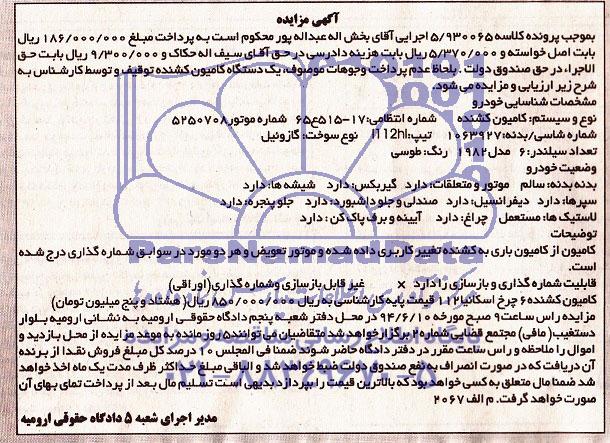 آگهی مزایده
بموجب پرونده کلاسه ۵/۹۳۰۰۶۵ اجرایی آقای بخش اله عبداله پور محکوم است به پرداخت مبلغ ۱۸۶/۰۰۰/۰۰۰ ریال
بابت اصل خواسته و ۵/۳۷۰/۰۰۰ ریال بابت هزینه دادرسی در حق آقای سیف اله حکاک و ۹/۳۰۰/۰۰۰ ریال بابت حق
الاجرا، در حق صندوق دولت . بلحاظ عدم پرداخت وجوهات موصوف، یک دستگاه کامیون کشنده توقیف و توسط کارشناس به
شرح زیر ارزیابی و مزایده می شود.
مشخصات شناسایی خودرو
نوع و سیستم: کامیون کشنده شماره انتظامی: ۱۷-۵۱۵ع۶۵ شماره موتور ۵۲۵۰۷۰۸
شماره شاسی/بدنه: ۱۰۶۳۹۲۷ تیپ: ۱۱۲hl نوع سوخت: گازوئیل
تعداد سیلندر: ۶ مدل ۱۹۸۲ رنگ: طوسی
وضعیت خودرو
بدنه بدنه: سالم موتور و متعلقات: دارد گیربکس: دارد شیشه ها: دارد
سپرها: دارد دیفرانسیل: دارد صندلی و جلو داشبورد: دارد جلو پنجره: دارد
لاستیک ها: مستعمل چراغ: دارد آیینه و برف پاک کن : دارد
توضیحات
کامیون از کامیون باری به کشنده تغییر کاربری داده شده و موتور تعویض و هر دو مورد در سوابق شماره گذاری درج شده
است.
قابلیت شماره گذاری و بازسازی را دارد × غیر قابل بازسازی و شماره گذاری (اوراقی)
کامیون کشنده ۶ چرخ اسکانیا ۱۱۲ قیمت پایه کارشناسی به ریال ۸۵۰/۰۰۰/۰۰۰ ریال( هشتاد و پنج میلیون تومان)
مزایده راس ساعت ۹ صبح مورخه ۹۴/۶/۱۰ در محل دفتر شعبه پنجم دادگاه حقوقی ارومیه به نشانی ارومیه بلوار
دستغیب( مافی) مجتمع قضایی شماره ۲ برگزار خواهد شد. متقاضیان می توانند ۵ روز مانده به موعد مزایده از محل بازدید و
اموال را ملاحظه و راس ساعت مقرر در دفتر دادگاه حاضر شوند ضمنا فی المجلس ۱۰ درصد کل مبلغ فروش نقدا از برنده
آن دریافت که در صورت انصراف به نفع صندوق دولت ضبط خواهد شد و الباقی مبلغ حداکثر ظرف مدت یک ماه اخذ خواهد
شد ضمنا مال متعلق به کسی خواهد بود که بالاترین قیمت را بپردازد بدیهی است تسلیم مال بعد از پرداخت تمای بهای آن
صورت خواهد گرفت. م الف ۲۰۶۷
مدیر اجرای شعبه ۵ دادگاه حقوقی ارومیه
ParsNamadData
۰۲۱-۸۸۳۴۹۶۷۰-۵